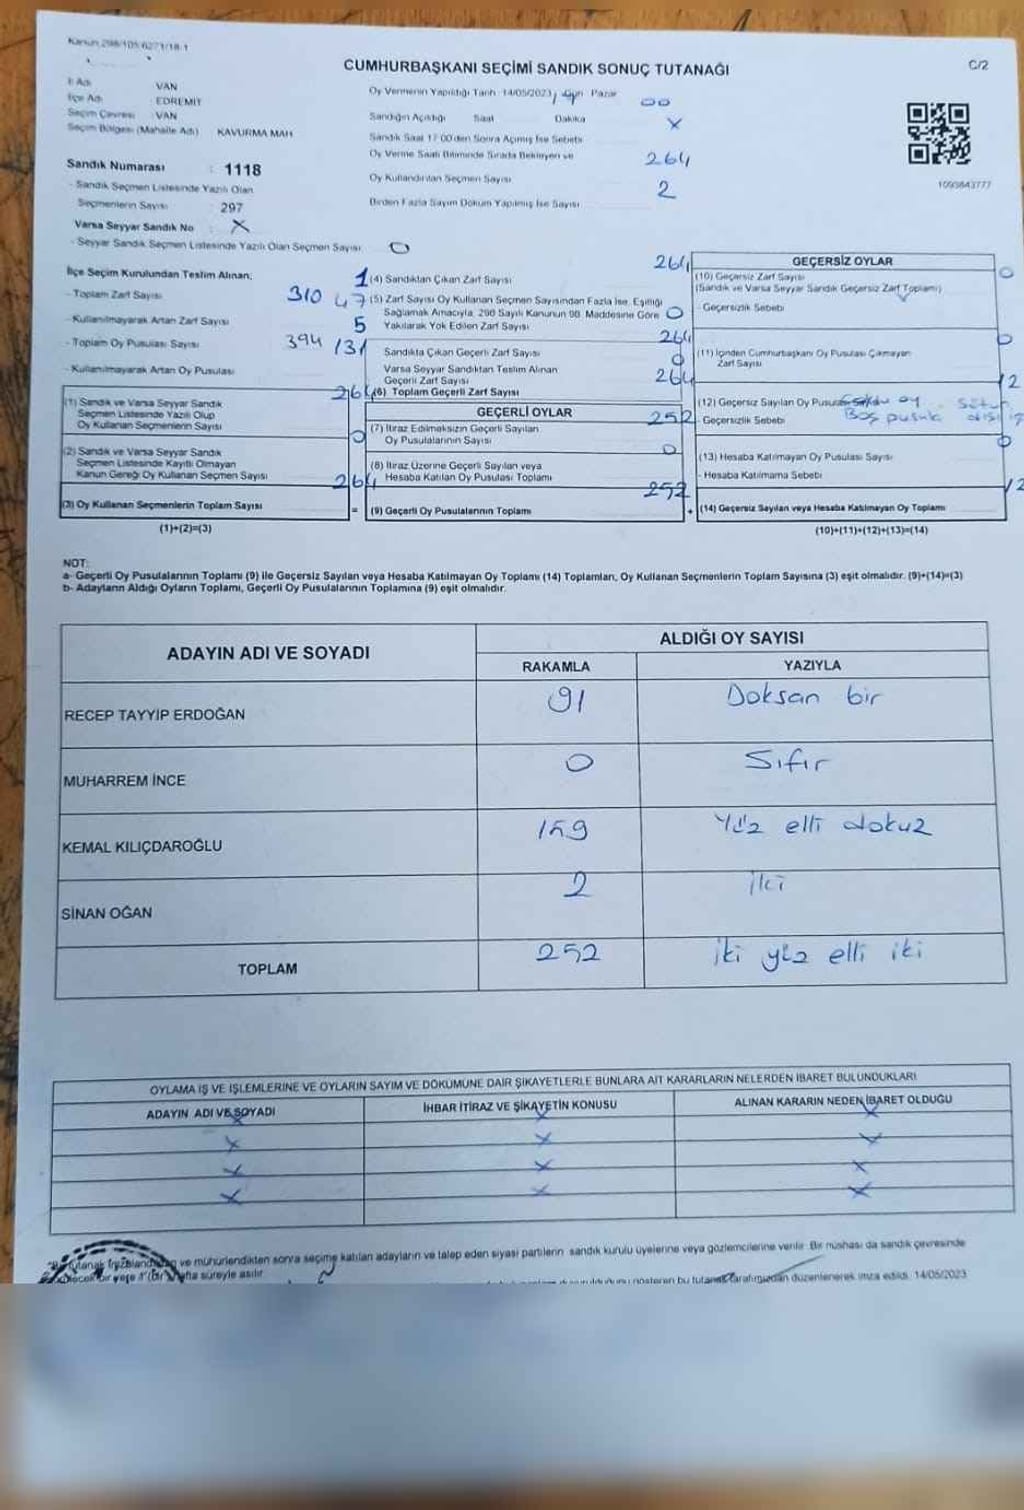 Kanun 298/105 6271/18-1
CUMHURBAŞKANI SEÇİMİ SANDIK SONUÇ TUTANAĞI
C/2
İl Adı VAN
İlçe Adı EDREMİT
Seçim Çevresi VAN
Seçim Bölgesi (Mahalle Adı) KAVURMA MAH
Sandık Numarası : 1118
- Sandık Seçmen Listesinde Yazılı Olan
Seçmenlerin Sayısı : 297
Varsa Seyyar Sandık No : X
- Seyyar Sandık Seçmen Listesinde Yazılı Olan Seçmen Sayısı O
Oy Vermenin Yapıldığı Tarih 14/05/2023 Gün Pazar
Sandığın Açıldığı Saat Dakika 00
Sandık Saat 17 00'den Sonra Açılmış İse Sebebi X
Oy Verme Saati Bitiminde Sırada Bekleyen ve
Oy Kullandırılan Seçmen Sayısı 264
Birden Fazla Sayım Döküm Yapılmış İse Sayısı 2
1093843777
İlçe Seçim Kurulundan Teslim Alınan;
- Toplam Zarf Sayısı 310
- Kullanılmayarak Artan Zarf Sayısı 47
- Toplam Oy Pusulası Sayısı 394
- Kullanılmayarak Artan Oy Pusulası 131
(1) Sandık ve Varsa Seyyar Sandık
Seçmen Listesinde Yazılı Olup
Oy Kullanan Seçmenlerin Sayısı 264
(2) Sandık ve Varsa Seyyar Sandık
Seçmen Listesinde Kayıtlı Olmayan
Kanun Gereği Oy Kullanan Seçmen Sayısı 0
(3) Oy Kullanan Seçmenlerin Toplam Sayısı 264
(1)+(2)=(3)
1 (4) Sandıktan Çıkan Zarf Sayısı 264
(5) Zarf Sayısı Oy Kullanan Seçmen Sayısından Fazla İse, Eşitliği
Sağlamak Amacıyla, 298 Sayılı Kanunun 98. Maddesine Göre
5 Yakılarak Yok Edilen Zarf Sayısı O
Sandıkta Çıkan Geçerli Zarf Sayısı 264
Varsa Seyyar Sandıktan Teslim Alınan
Geçerli Zarf Sayısı 0
(6) Toplam Geçerli Zarf Sayısı 264
GEÇERLİ OYLAR
(7) İtiraz Edilmeksizin Geçerli Sayılan
Oy Pusulalarının Sayısı 252
(8) İtiraz Üzerine Geçerli Sayılan veya
Hesaba Katılan Oy Pusulası Toplamı 0
= (9) Geçerli Oy Pusulalarının Toplamı 252
GEÇERSİZ OYLAR
(10) Geçersiz Zarf Sayısı 0
(Sandık ve Varsa Seyyar Sandık Geçersiz Zarf Toplamı)
- Geçersizlik Sebebi
(11) İçinden Cumhurbaşkanı Oy Pusulası Çıkmayan
Zarf Sayısı 0
(12) Geçersiz Sayılan Oy Pusulası 12
- Geçersizlik Sebebi Boş pusula
(13) Hesaba Katılmayan Oy Pusulası Sayısı 0
- Hesaba Katılmama Sebebi
+ (14) Geçersiz Sayılan veya Hesaba Katılmayan Oy Toplamı 12
(10)+(11)+(12)+(13)=(14)
NOT:
a- Geçerli Oy Pusulalarının Toplamı (9) ile Geçersiz Sayılan veya Hesaba Katılmayan Oy Toplamı (14) Toplamları, Oy Kullanan Seçmenlerin Toplam Sayısına (3) eşit olmalıdır. (9)+(14)=(3)
b- Adayların Aldığı Oyların Toplamı, Geçerli Oy Pusulalarının Toplamına (9) eşit olmalıdır.
ADAYIN ADI VE SOYADI ALDIĞI OY SAYISI
RAKAMLA YAZIYLA
RECEP TAYYİP ERDOĞAN 91 Doksan bir
MUHARREM İNCE 0 Sıfır
KEMAL KILIÇDAROĞLU 159 Yüz elli dokuz
SİNAN OĞAN 2 iki
TOPLAM 252 iki yüz elli iki
OYLAMA İŞ VE İŞLEMLERİNE VE OYLARIN SAYIM VE DÖKÜMÜNE DAİR ŞİKAYETLERLE BUNLARA AİT KARARLARIN NELERDEN İBARET BULUNDUKLARI
ADAYIN ADI VE SOYADI İHBAR İTİRAZ VE ŞİKAYETİN KONUSU ALINAN KARARIN NEDEN İBARET OLDUĞU
X X X
X X X
X X X
X X X
ve mühürlendikten sonra seçime katılan adayların ve talep eden siyasi partilerin sandık kurulu üyelerine veya gözlemcilerine verilir. Bir nüshası da sandık çevresinde
hafta süreyle asılır
gösteren bu tutanak tarafımızdan düzenlenerek imza edildi. 14/05/2023